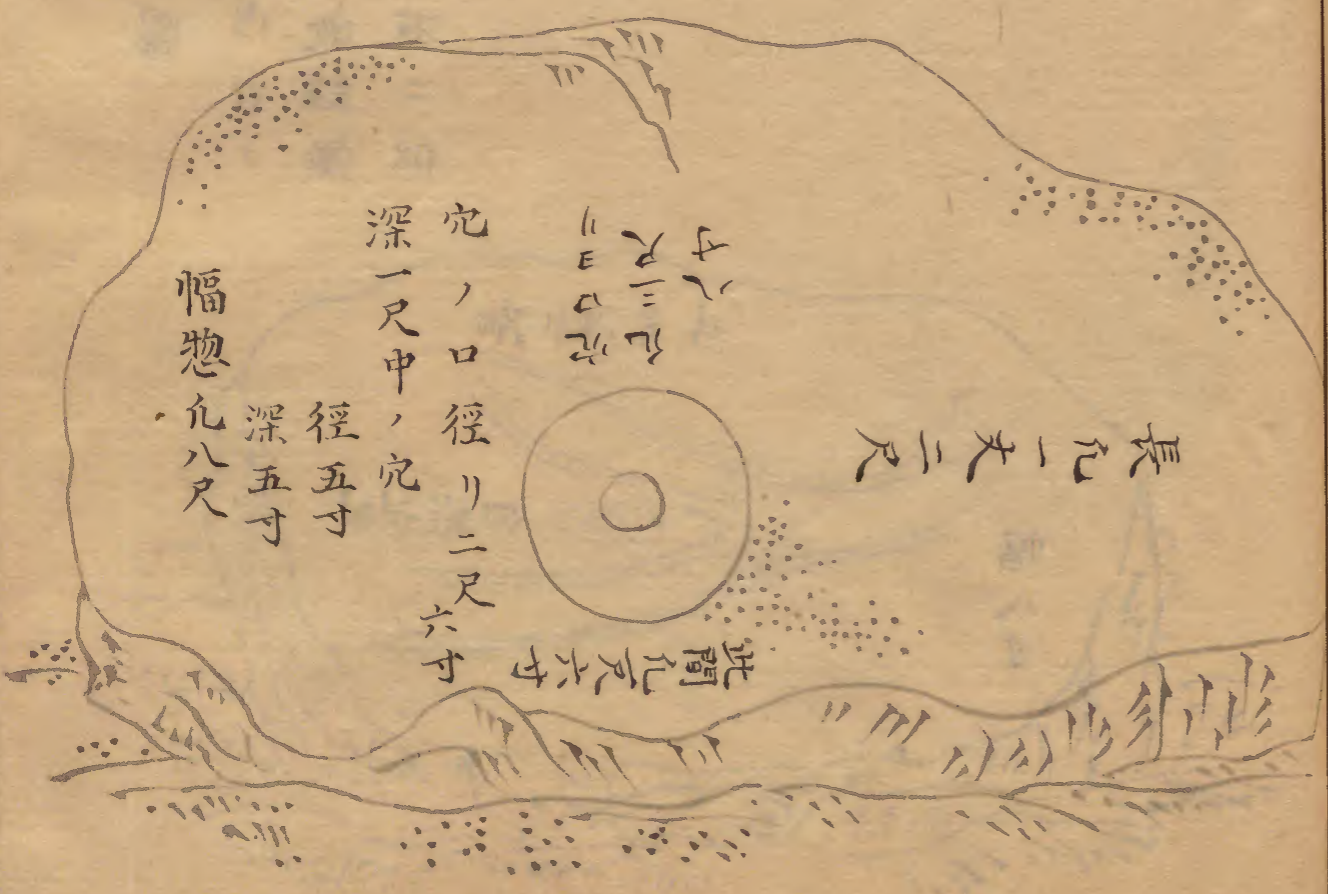 長凡一丈二尺
穴口ヨリ
凡三尺
八寸
此間凡尺六寸
穴ノ口徑リ二尺六寸
深一尺中ノ穴
徑五寸
深五寸
幅惣凡八尺